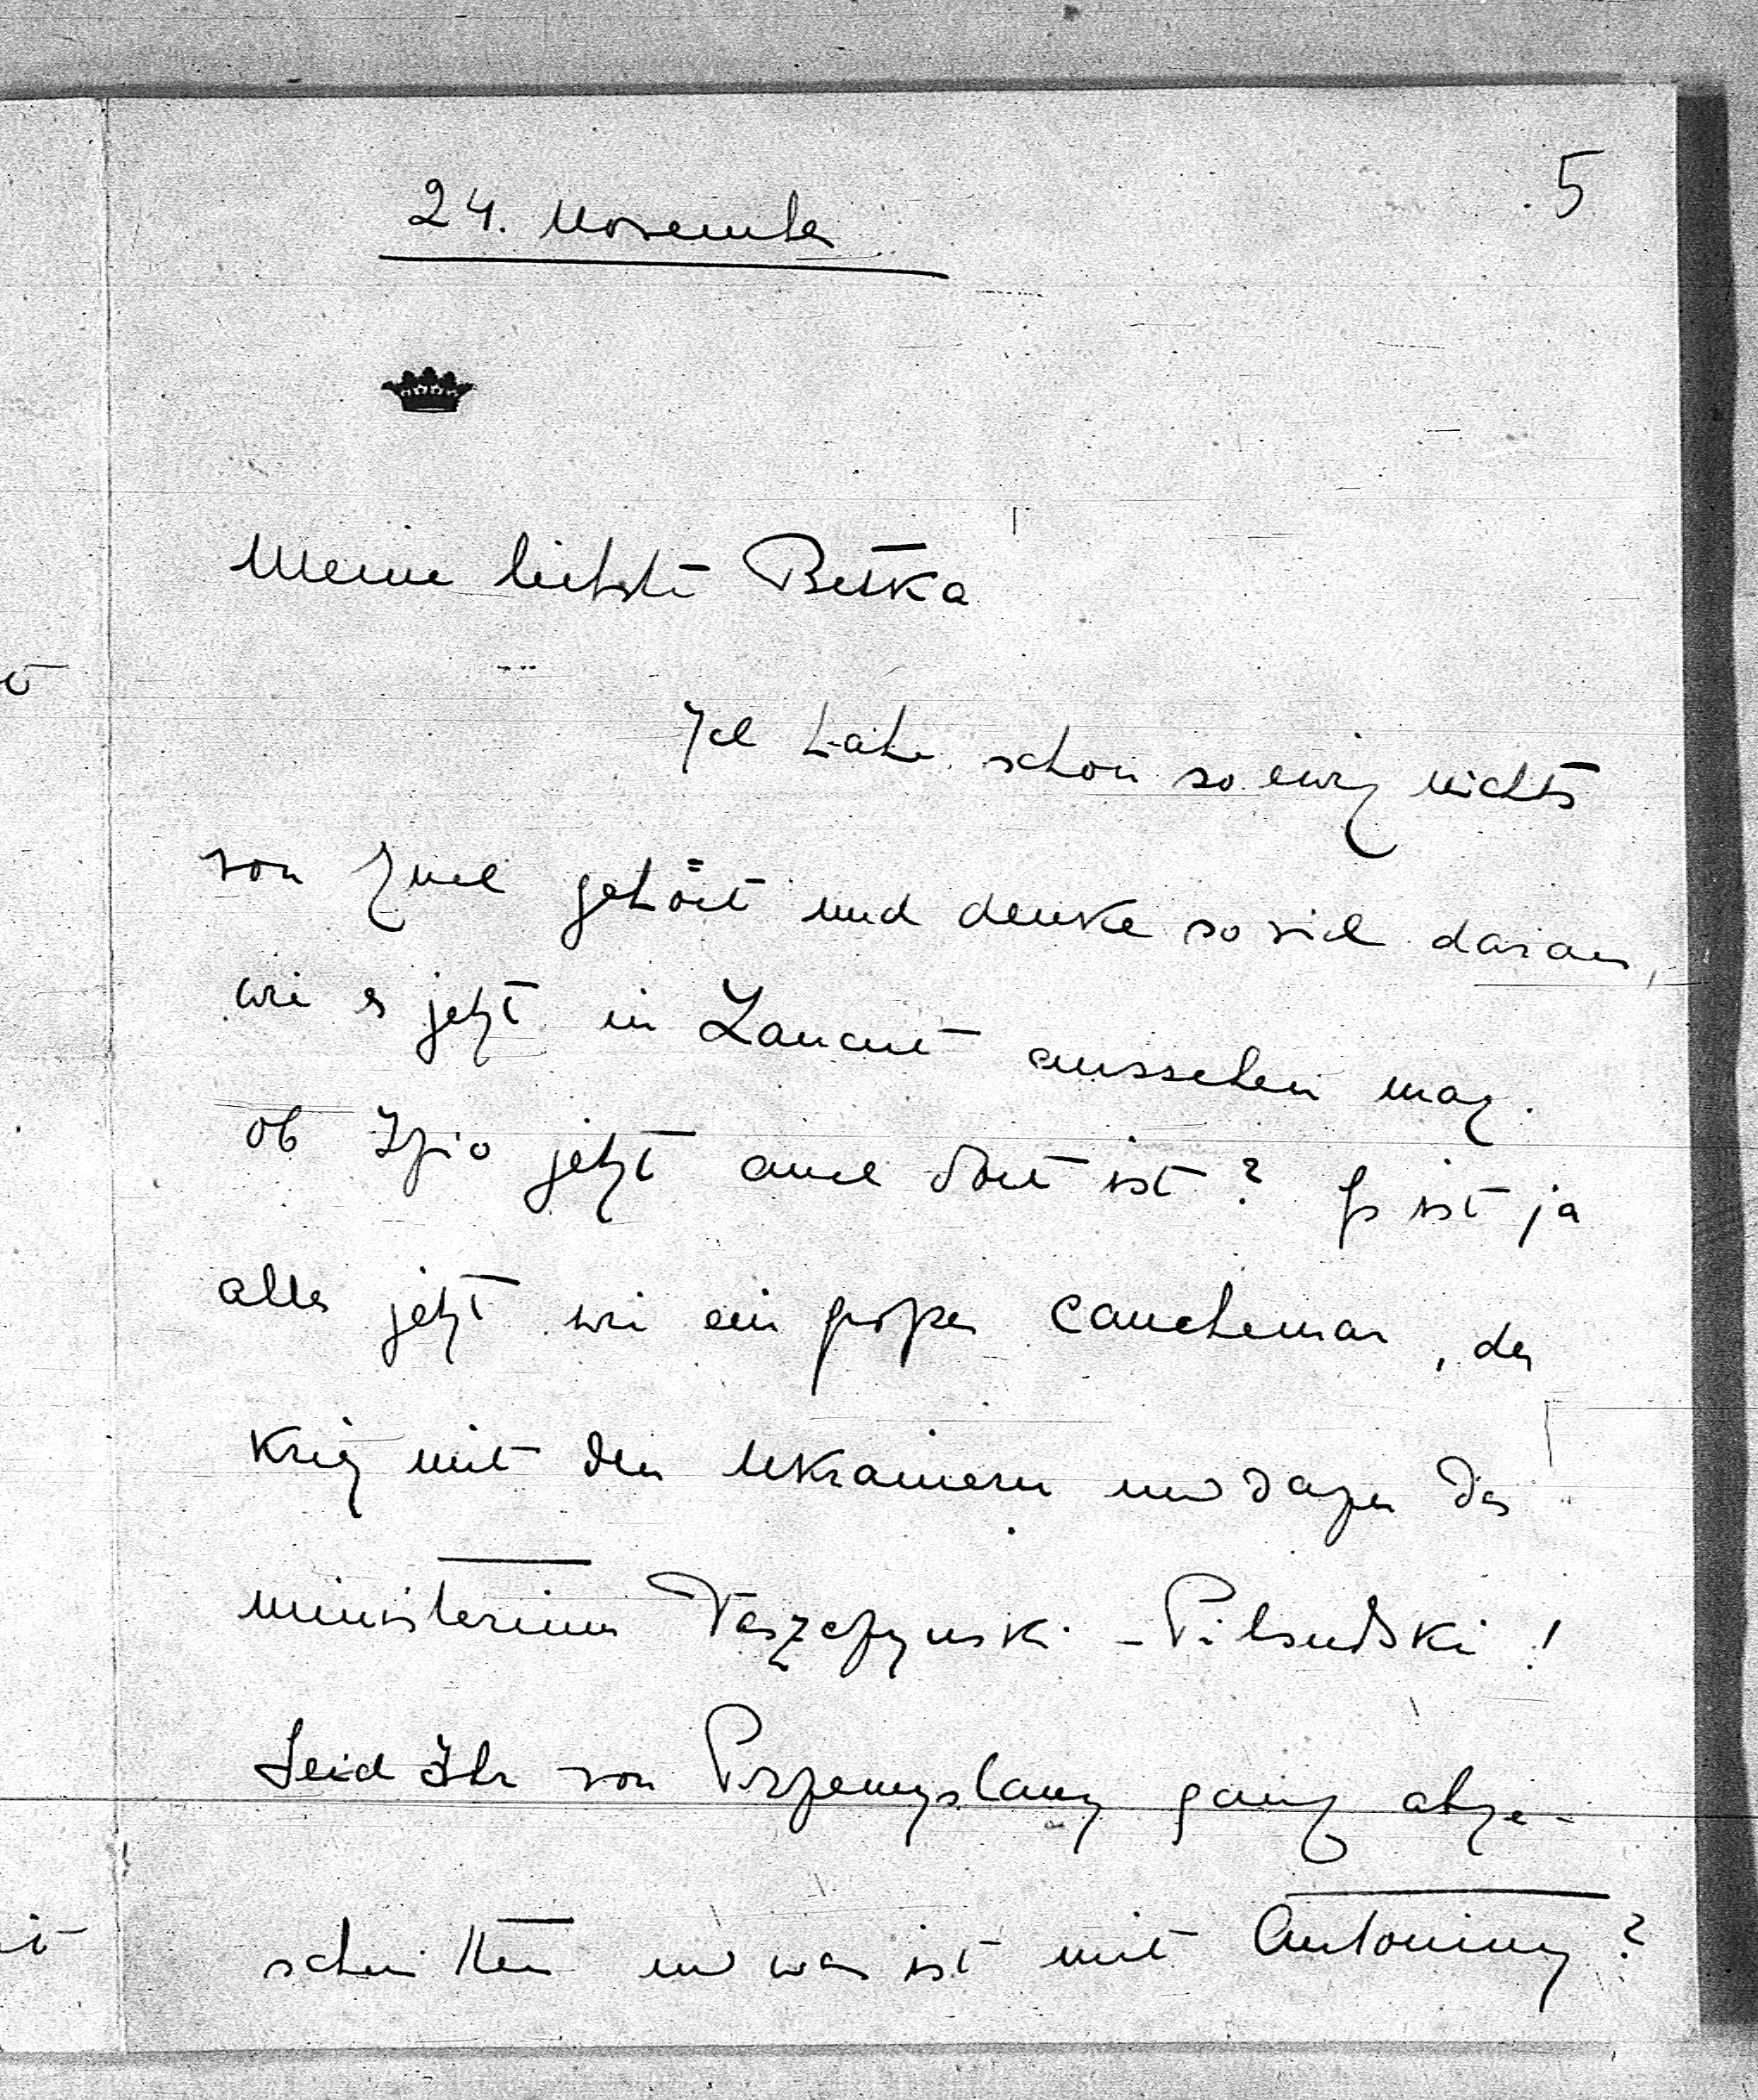 5
24. November
Meine liebste Betka
Ich habe schon so ewig nichts
von Euch gehört und denke so viel daran,
wie es jetzt in Lancut aussehen mag.
Ob Jzio jetzt auch dort ist? Es ist ja
alles jetzt wie ein großer Cauchemar, der
Krieg mit den Ukrainern und dazu das
Ministerium Daszczynski - Pilsudski!
Seid Ihr von Przemyslany ganz abge-
schnitten und was ist mit Antoniny?